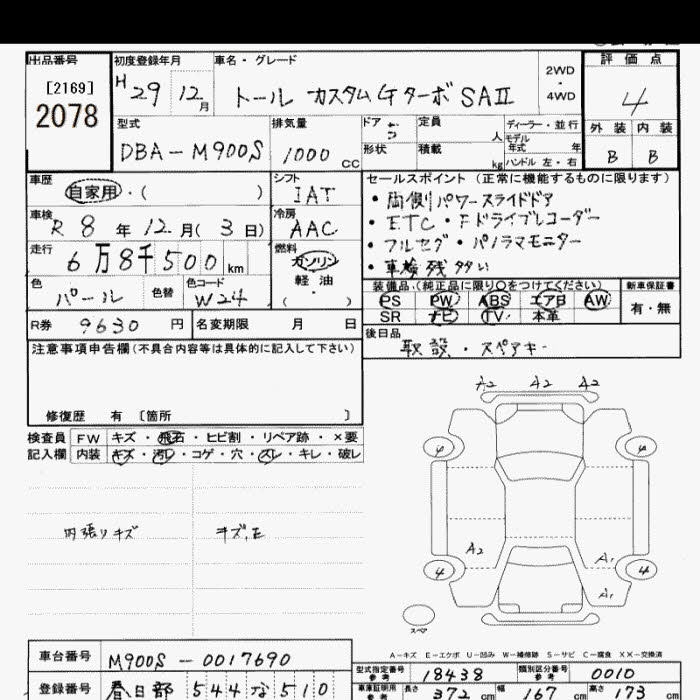 出品番号 初度登録年月 車名・グレード 評価点
[2169] H29 12月 トール カスタムGターボ SAⅡ 2WD・4WD 4
2078
型式 排気量 ドア 定員 人 ディーラー・並行 外装 内装
DBA-M900S 1000cc 5 形状 積載 kg モデル年式 年 ハンドル 左・右 B B
車歴 自家用・( ) シフト IAT セールスポイント(正常に機能するものに限ります)
車検 R8年12月(3日) 冷房 AAC ・両側パワースライドドア
・ETC・Fドライブレコーダー
走行 6万8千500km 燃料 ガソリン 軽油・( ) ・フルセグ・パノラマモニター
・車検残多い
色 パール 色替 色コード W24 装備品(純正品に限り○をつけてください) 新車保証書
PS PW ABS エアB AW 有・無
R券 9630円 名変期限 月 日 SR ナビ TV 本革
注意事項申告欄(不具合内容等は具体的に記入して下さい) 後日品
取説・スペアキー
修復歴 有 [箇所 ]
A2 A2 A2
検査員 FW キズ・飛石・ヒビ割・リペア跡・×要
記入欄 内装 キズ・汚レ・コゲ・穴・スレ・キレ・破レ
4 4
内張りキズ キズ、E
A2 A1
4 4
A1
スペア
A-キズ E-エクボ U-凹み W-補修跡 S-サビ C-腐食 XX-交換済
車台番号 M900S-0017690 型式指定番号 参考 18438 類別区分番号 参考 0010
登録番号 春日部 544 な 510 車庫証明用 参考 長さ 372cm 幅 167cm 高さ 173cm